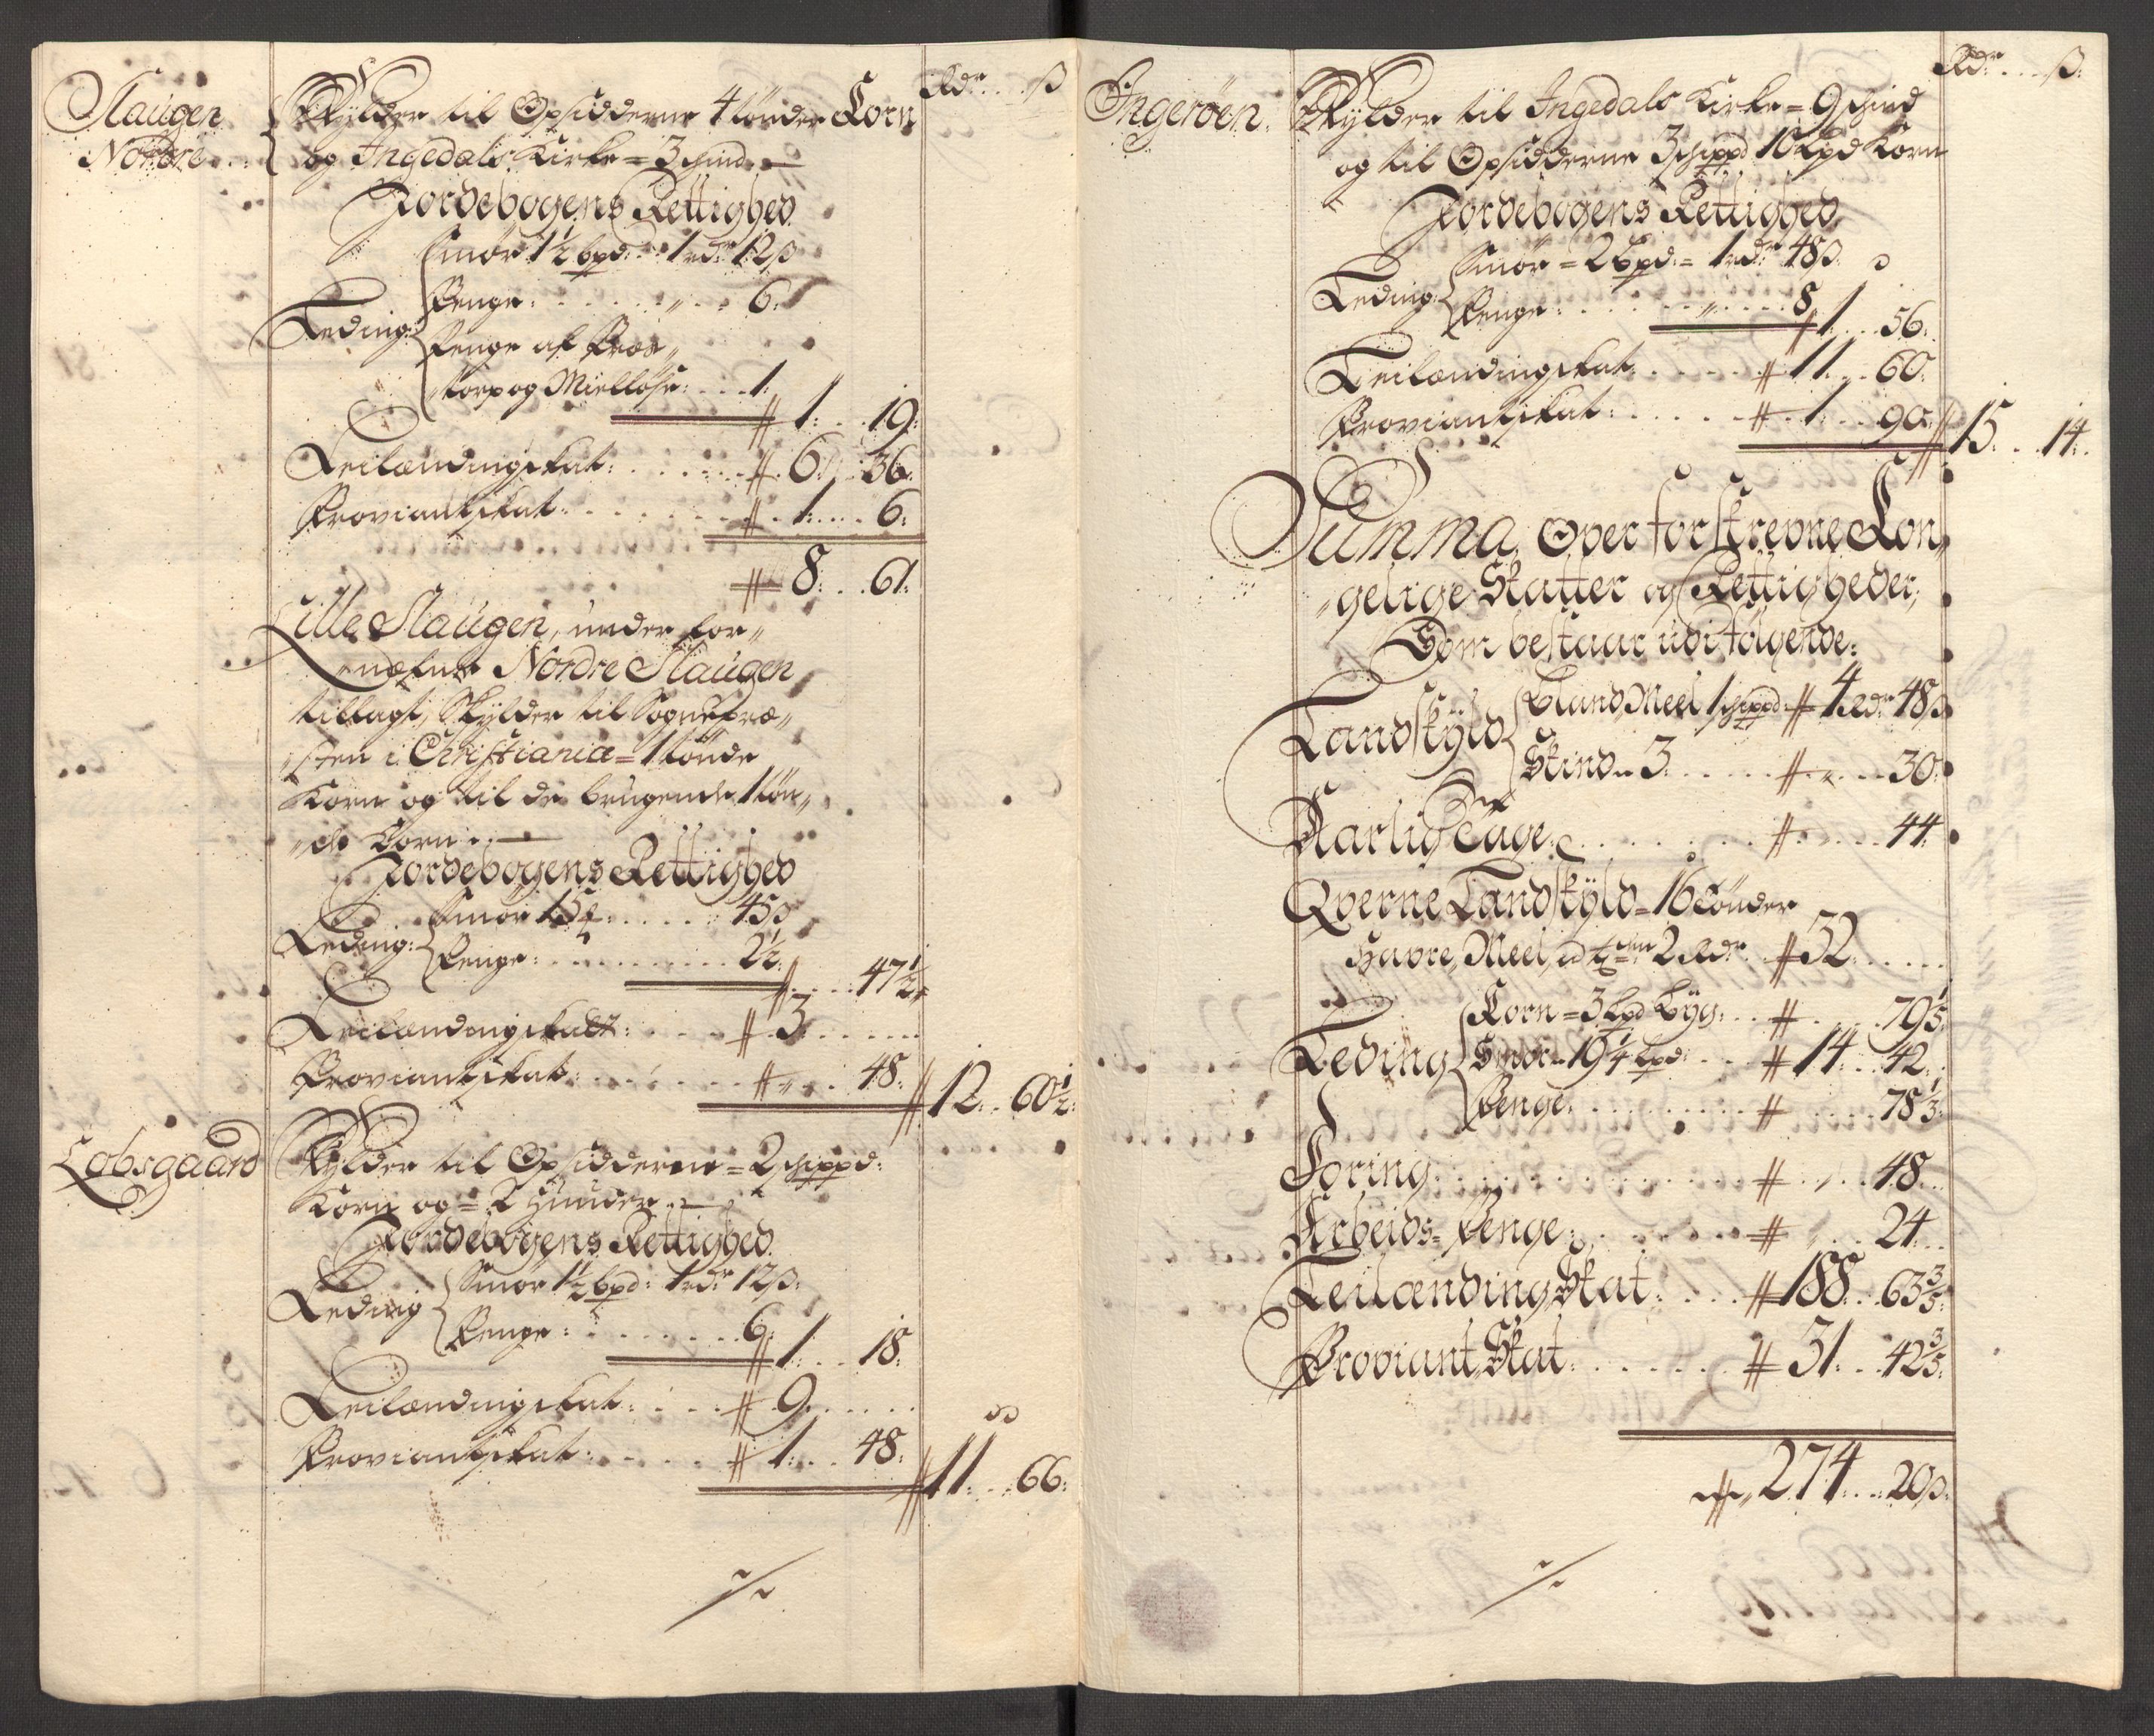 Rdr. ß
Slaugen Nordre
Skylder til Opsidderne 4 tönder Corn
og Ingedals Kirke = 3 skind
Jordebogens Rettighed
Leding: Smör 1½ bpd: 1 rdr 12 ß
Penge: 6:
Penge af Præs„
„torp og Miellöse: 1:
1: 19:
Leilændingskat: 6: 36:
Proviantskat: 1: 6:
8: 61:
Lille Slaugen, under for„
„nefnte Nordre Slaugen
tillagt, Skylder til Sognepræ„
„sten i Christiania = 1 tönde
Korn og til de brugende 1 tön„
„de Corn
Jordebogens Rettighed
Leding: Smör 15 45 ß
Penge: 2½
47½
Leilændingskatt: 3
Proviantskat: 48: 12: 60½:
Lobsgaard
Skylder til Opsidderne = 2 schippd:
Korn og = 2 Huuder
Jordebogens Rettighed
Leding Smör 1½ bpd: 1 rdr 12 ß:
Penge: 6:
1: 18:
Leilændingskat: 9
Proviantskat: 1: 48: 11: 66:
Rdr. ß:
Ingeröen.
Skylder til Ingedals Kirke = 9 schind
og til Opsidderne 3 schippd 10 Lpd Korn
Jordebogens Rettighed
Leding: Smör = 2 bpd: = 1 rdr 48 ß
Penge: 8
1 56:
Leilændingskat 11 60:
Proviantskat: 1 90: 15 14:
Summa Over forskrevne Kon„
„gelige Skatter og Rettigheder,
Som bestaar udi fölgende:
Landskyld Bland Meel 1 schippd 4 Rdr 48 ß
Skind = 3 30:
Aarlig Tage: 44:
Qverne Landskyld = 16 tönder
Havre Meel, 2 Rdr 32
Leding Corn = 3 Lpd Byg: 79⅕:
Smör = 19¼ bpd: 14 42:
Penge 78⅓:
Foring 48
Arbeids = Penge: 24
Leilænding Skat 188 63⅗:
Proviant Skat: 31 42⅗:
274 20 ß: